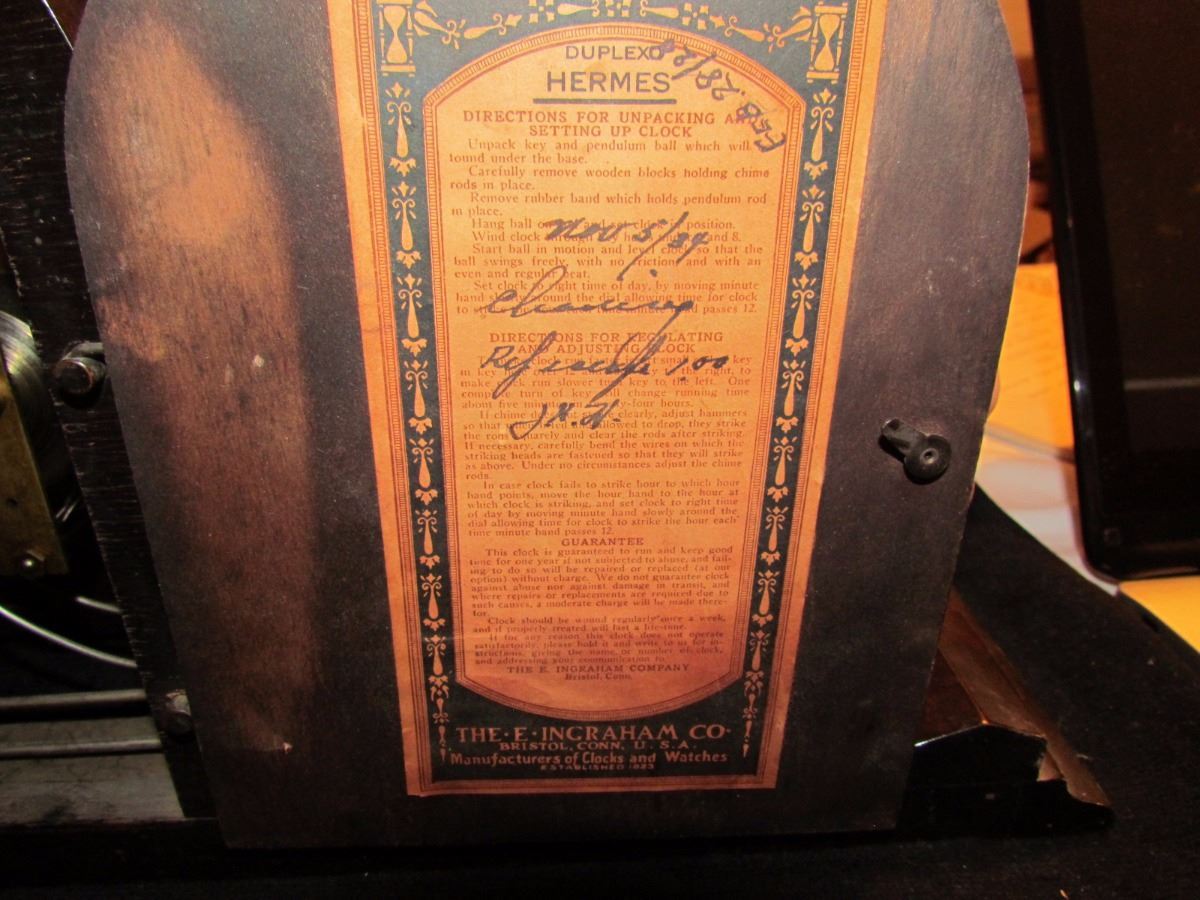 DUPLEXO
HERMES
FEB. 28/2
DIRECTIONS FOR UNPACKING AND
SETTING UP CLOCK
Unpack key and pendulum ball which will
found under the base.
Carefully remove wooden blocks holding chime
rods in place.
Remove rubber band which holds pendulum rod
in place.
Hang ball position.
Wind clock and 8.
Start ball in motion and level clock so that the
ball swings freely, with no friction and with an
even and regular beat.
Set clock to right time of day, by moving minute
hand slowly around the dial allowing time for clock
to passes 12.
Nov 5/34
Cleaning
DIRECTIONS FOR REGULATING
AND ADJUSTING CLOCK
key
the right, to
make clock run slower turn key to the left. One
complete turn of key will change running time
about five minutes in twenty-four hours.
J.H.
If chime does not clearly, adjust hammers
so that when allowed to drop, they strike
the rods squarely and clear the rods after striking.
If necessary, carefully bend the wires on which the
striking heads are fastened so that they will strike
as above. Under no circumstances adjust the chime
rods.
In case clock fails to strike hour to which hour
hand points, move the hour hand to the hour at
which clock is striking, and set clock to right time
of day by moving minute hand slowly around the
dial allowing time for clock to strike the hour each
time minute hand passes 12.
GUARANTEE
This clock is guaranteed to run and keep good
time for one year if not subjected to abuse, and fail-
ing to do so will be repaired or replaced (at our
option) without charge. We do not guarantee clock
against abuse nor against damage in transit, and
where repairs or replacements are required due to
such causes, a moderate charge will be made there-
for.
Clock should be wound regularly once a week,
and if properly treated will last a life-time.
If for any reason this clock does not operate
satisfactorily, please hold it and write to us for in-
structions, giving the name or number of clock,
and addressing your communication to
THE E. INGRAHAM COMPANY
Bristol, Conn.
THE·E·INGRAHAM CO·
BRISTOL, CONN. U. S. A.
Manufacturers of Clocks and Watches
ESTABLISHED 1823